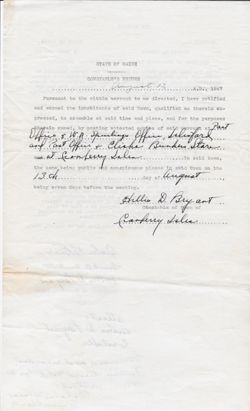 STATE OF MAINE
CONSTABLE'S RETURN
August 13 A.D. 1947
Pursuant to the within warrant to me directed, I have notified
and warned the inhabitants of said Town, qualified as therein ex-
pressed, to assemble at said time and place, and for the purposes
therein named, by posting attested copies of said warrant at Post
Office & W.A. Spurlings Office, Islesford
and Post Office & Elisha Bunkers Store
at Cranberry Isles in said town,
the same being public and conspicuous places in said Town on the
13th day of August
being seven days before the meeting.
Hillis D. Bryant
Constable of Town of
Cranberry Isles